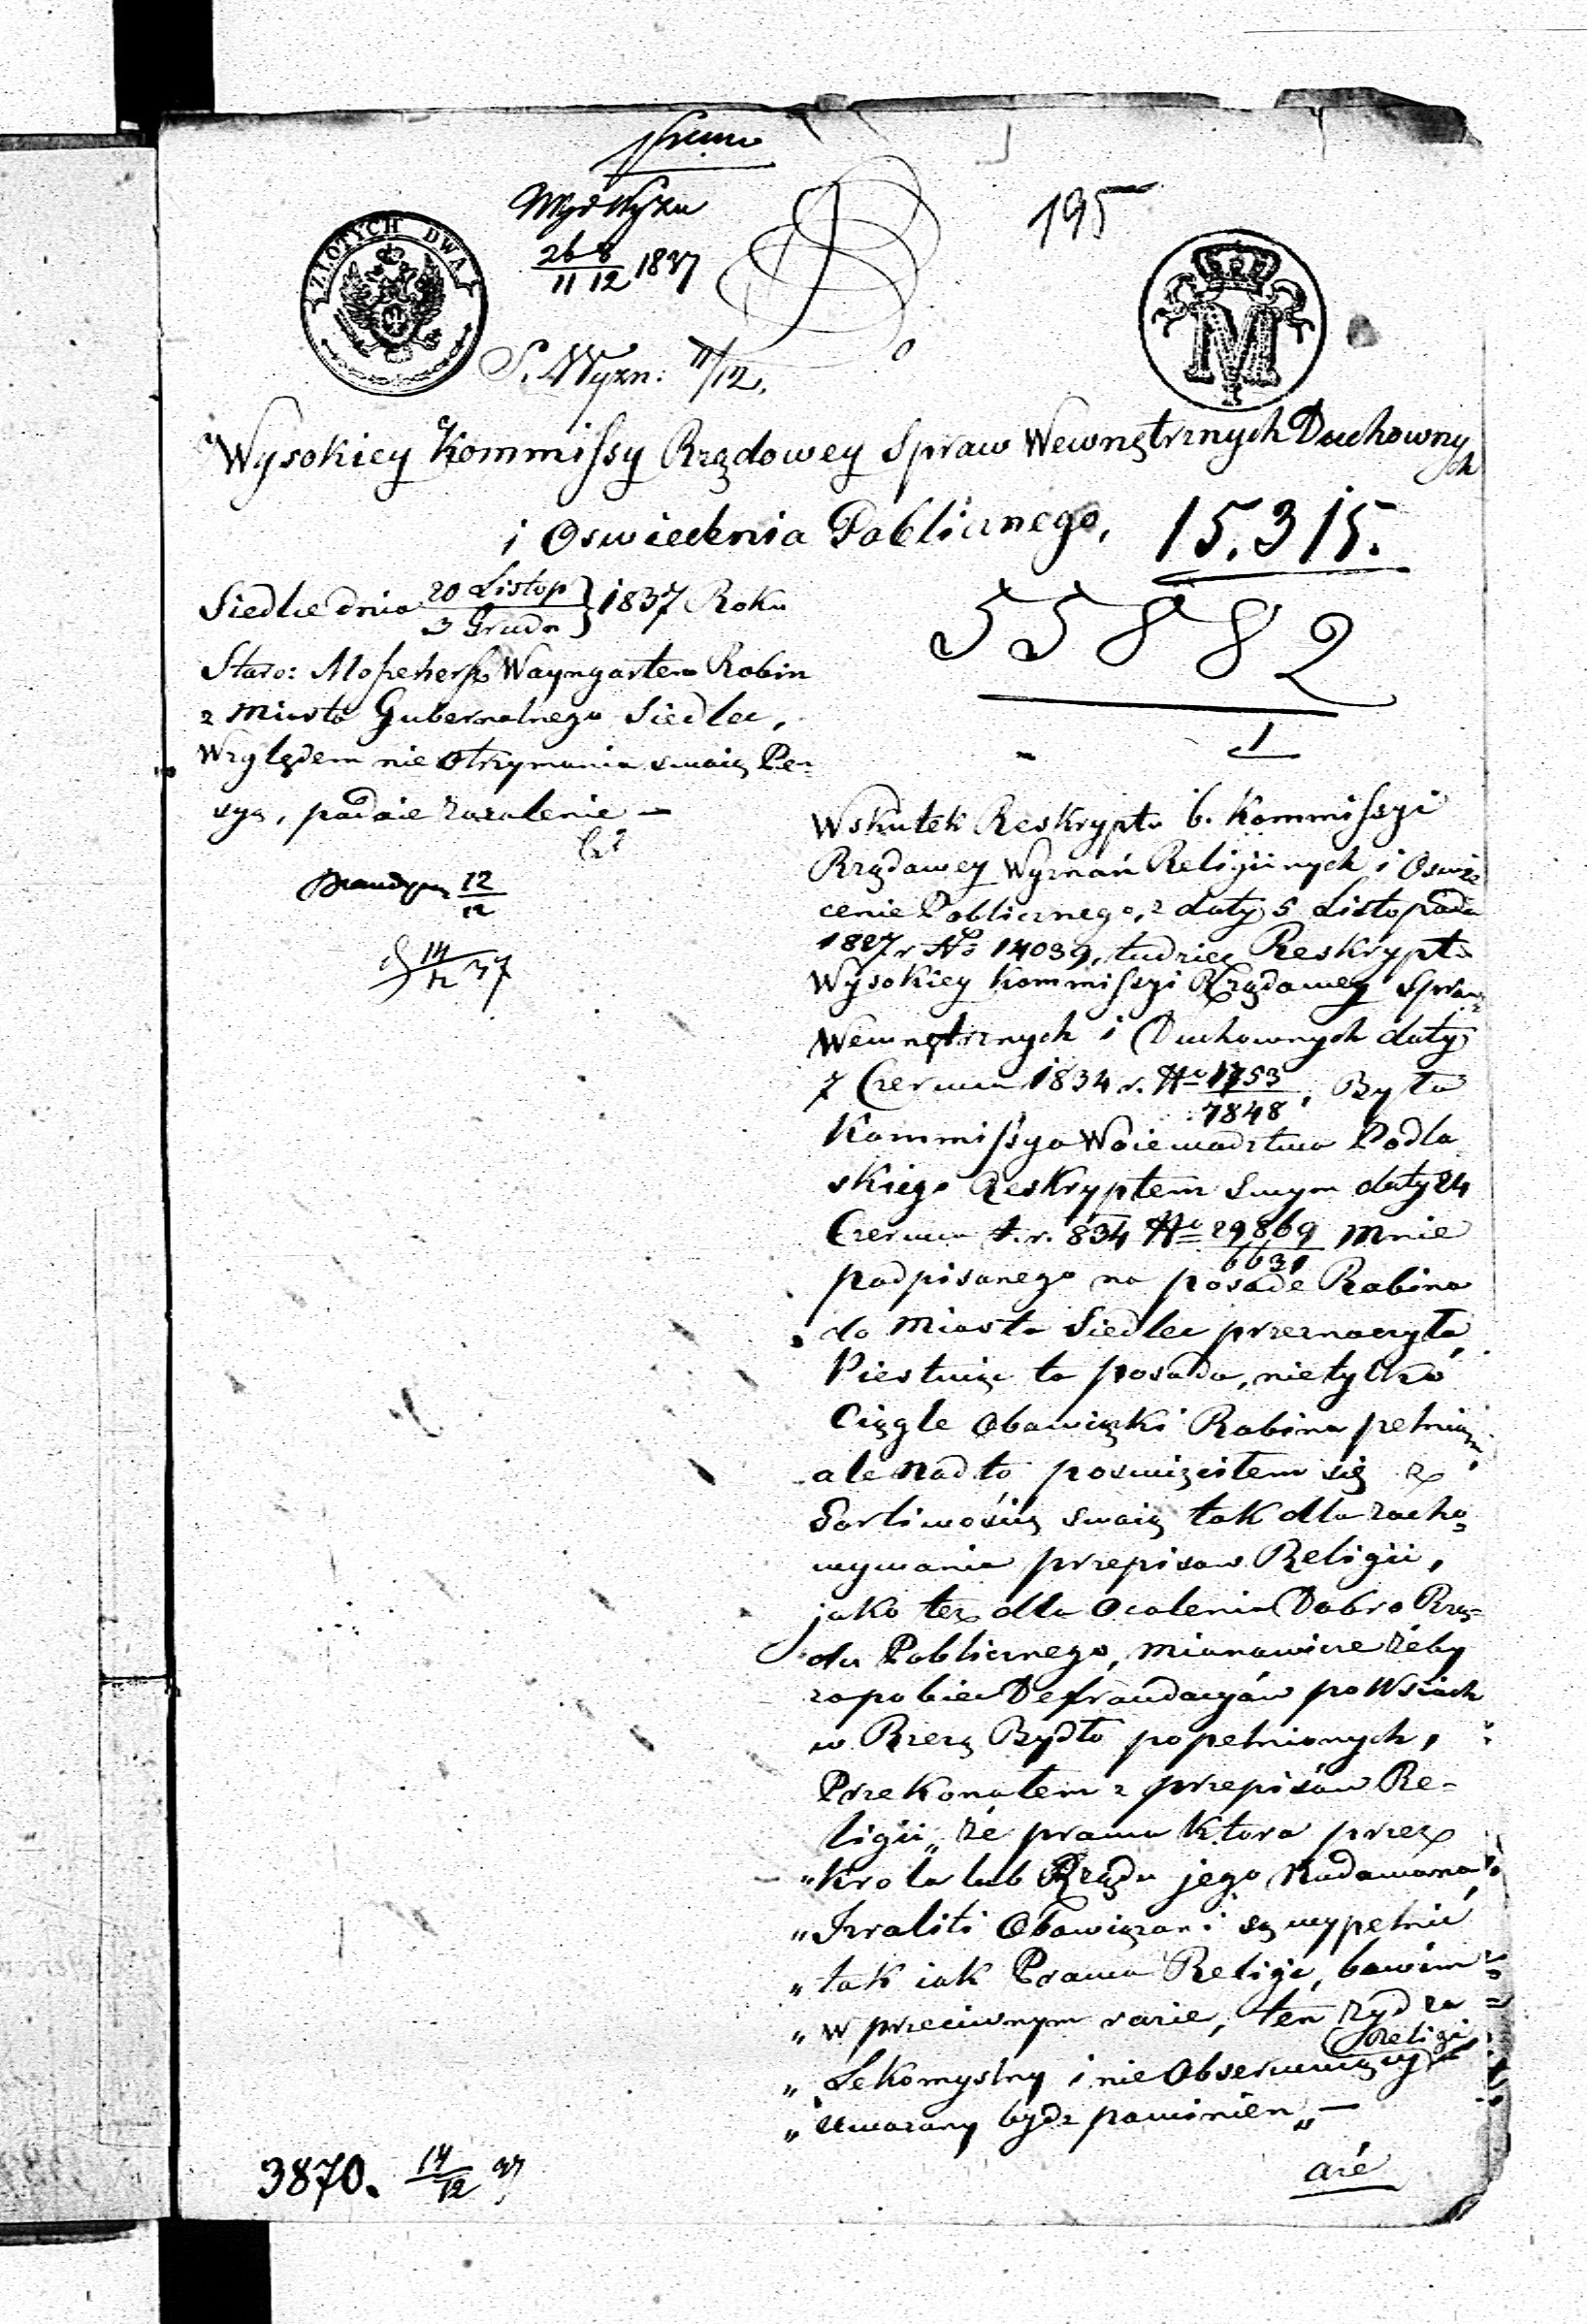 Wyd Wyzn
26 8
11 12 1837
195
ZŁOTYCH DWA
M
S. Wyzn: 11/12.
Wysokiey Kommissy Rządowey Spraw Wewnętrznych Duchownych
i Oswiecenia Publicznego,
15.315.
55882
1
Siedlce dnia 20 Listop / 3 Grudn } 1837 Roku
Staro: Wayngarten Rabin
z Miasta Gubernalnego Siedlec,
Względem nie otrzymania swoią Pen=
syą, podaie zazalenie —
12
12
14
12 37
Wskutek Reskryptu b. Kommissyi
Rządowey Wyznań Religiinych i Oswie
cenie Publicznego, z daty 5 Listopada
1827 r No 14039, tudziez Reskryptu
Wysokiey Kommissyi Rządowey Spraw
Wewnętrznych i Duchownych daty
7 Czerwca 1834 r. No 1753 / 7848, Była
Kommissya Woiewodztwa Podla
skiego Reskryptem swym daty 24
Czerwca t. r. 834 No 29869 / 6631 mnie
podpisanego na posade Rabina
do Miasta Siedlec przeznaczyła,
Piestuiąc ta posada, nietylko
Ciągle Obowiązki Rabina pełnią,
ale nadto poswięciłem się z
Gorliwością swoią tak dla zacho=
wywania przepisow Religii,
jako tez dla Ocalenia Dobro Rzą=
du Publicznego, mianowicie żeby
zapobiec Defraudacyów po Wsiach
w Rzezą Bydło popełnionych,
Przekonałem z przepisów Re-
ligii „ że prawa ktora przez
„ Krola lub Rządu jego Nadawana,
„ Izraliti Obowiązani są wypełnić
„ tak iak Prawa Religi, bowim
„ w przeciwnym razie, ten żyd za
„ Lekomyslny i nie Obserwuiący Religi
„ Uwazany bydz powinien „ —
aże
3870. 14
12 37